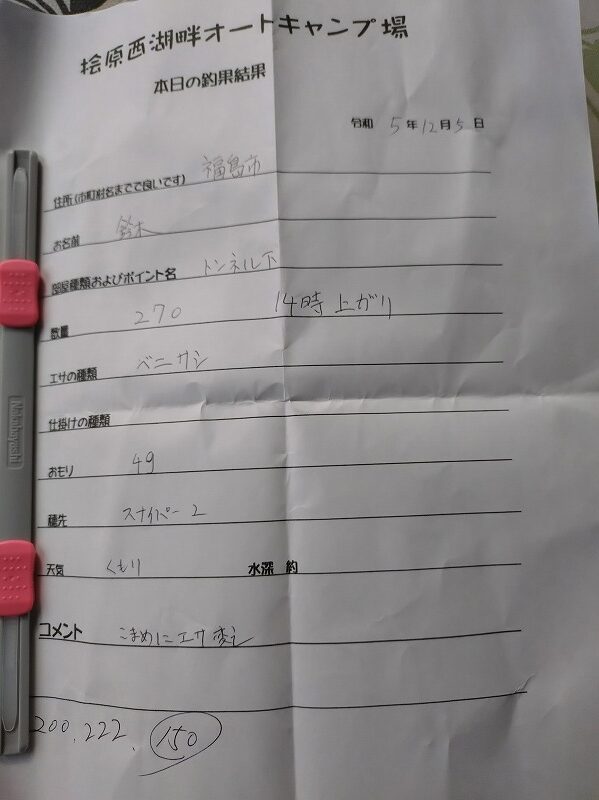 桧原西湖畔オートキャンプ場
本日の釣果結果
令和 5年12月5日
住所(市町村名までで良いです) 福島市
お名前 鈴木
部屋種類およびポイント名 トンネル下
数量 270 14時上がり
エサの種類 ベニサシ
仕掛けの種類
おもり 4g
穂先 スナイパー2
天気 くもり 水深 約
コメント こまめにエサ変え
200.222. 150